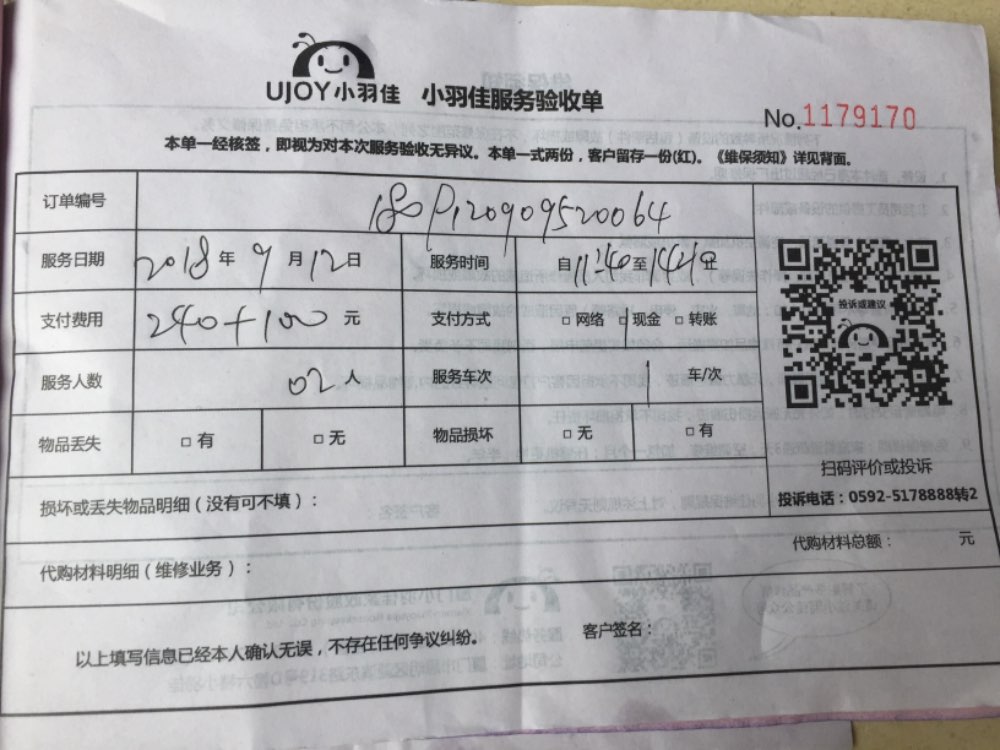 UJOY小羽佳 小羽佳服务验收单
No.1179170
本单一经核签，即视为对本次服务验收无异议。本单一式两份，客户留存一份(红)。《维保须知》详见背面。
订单编号 1809120909520064
服务日期 2018年9月12日 服务时间 自11:40至
支付费用 240+100元 支付方式 □网络 □现金 □转账
服务人数 02人 服务车次 1 车/次
物品丢失 □有 □无 物品损坏 □无 □有
投诉或建议
扫码评价或投诉
投诉电话：0592-5178888转2
损坏或丢失物品明细（没有可不填）：
代购材料总额： 元
代购材料明细（维修业务）：
客户签名：
以上填写信息已经本人确认无误，不存在任何争议纠纷。